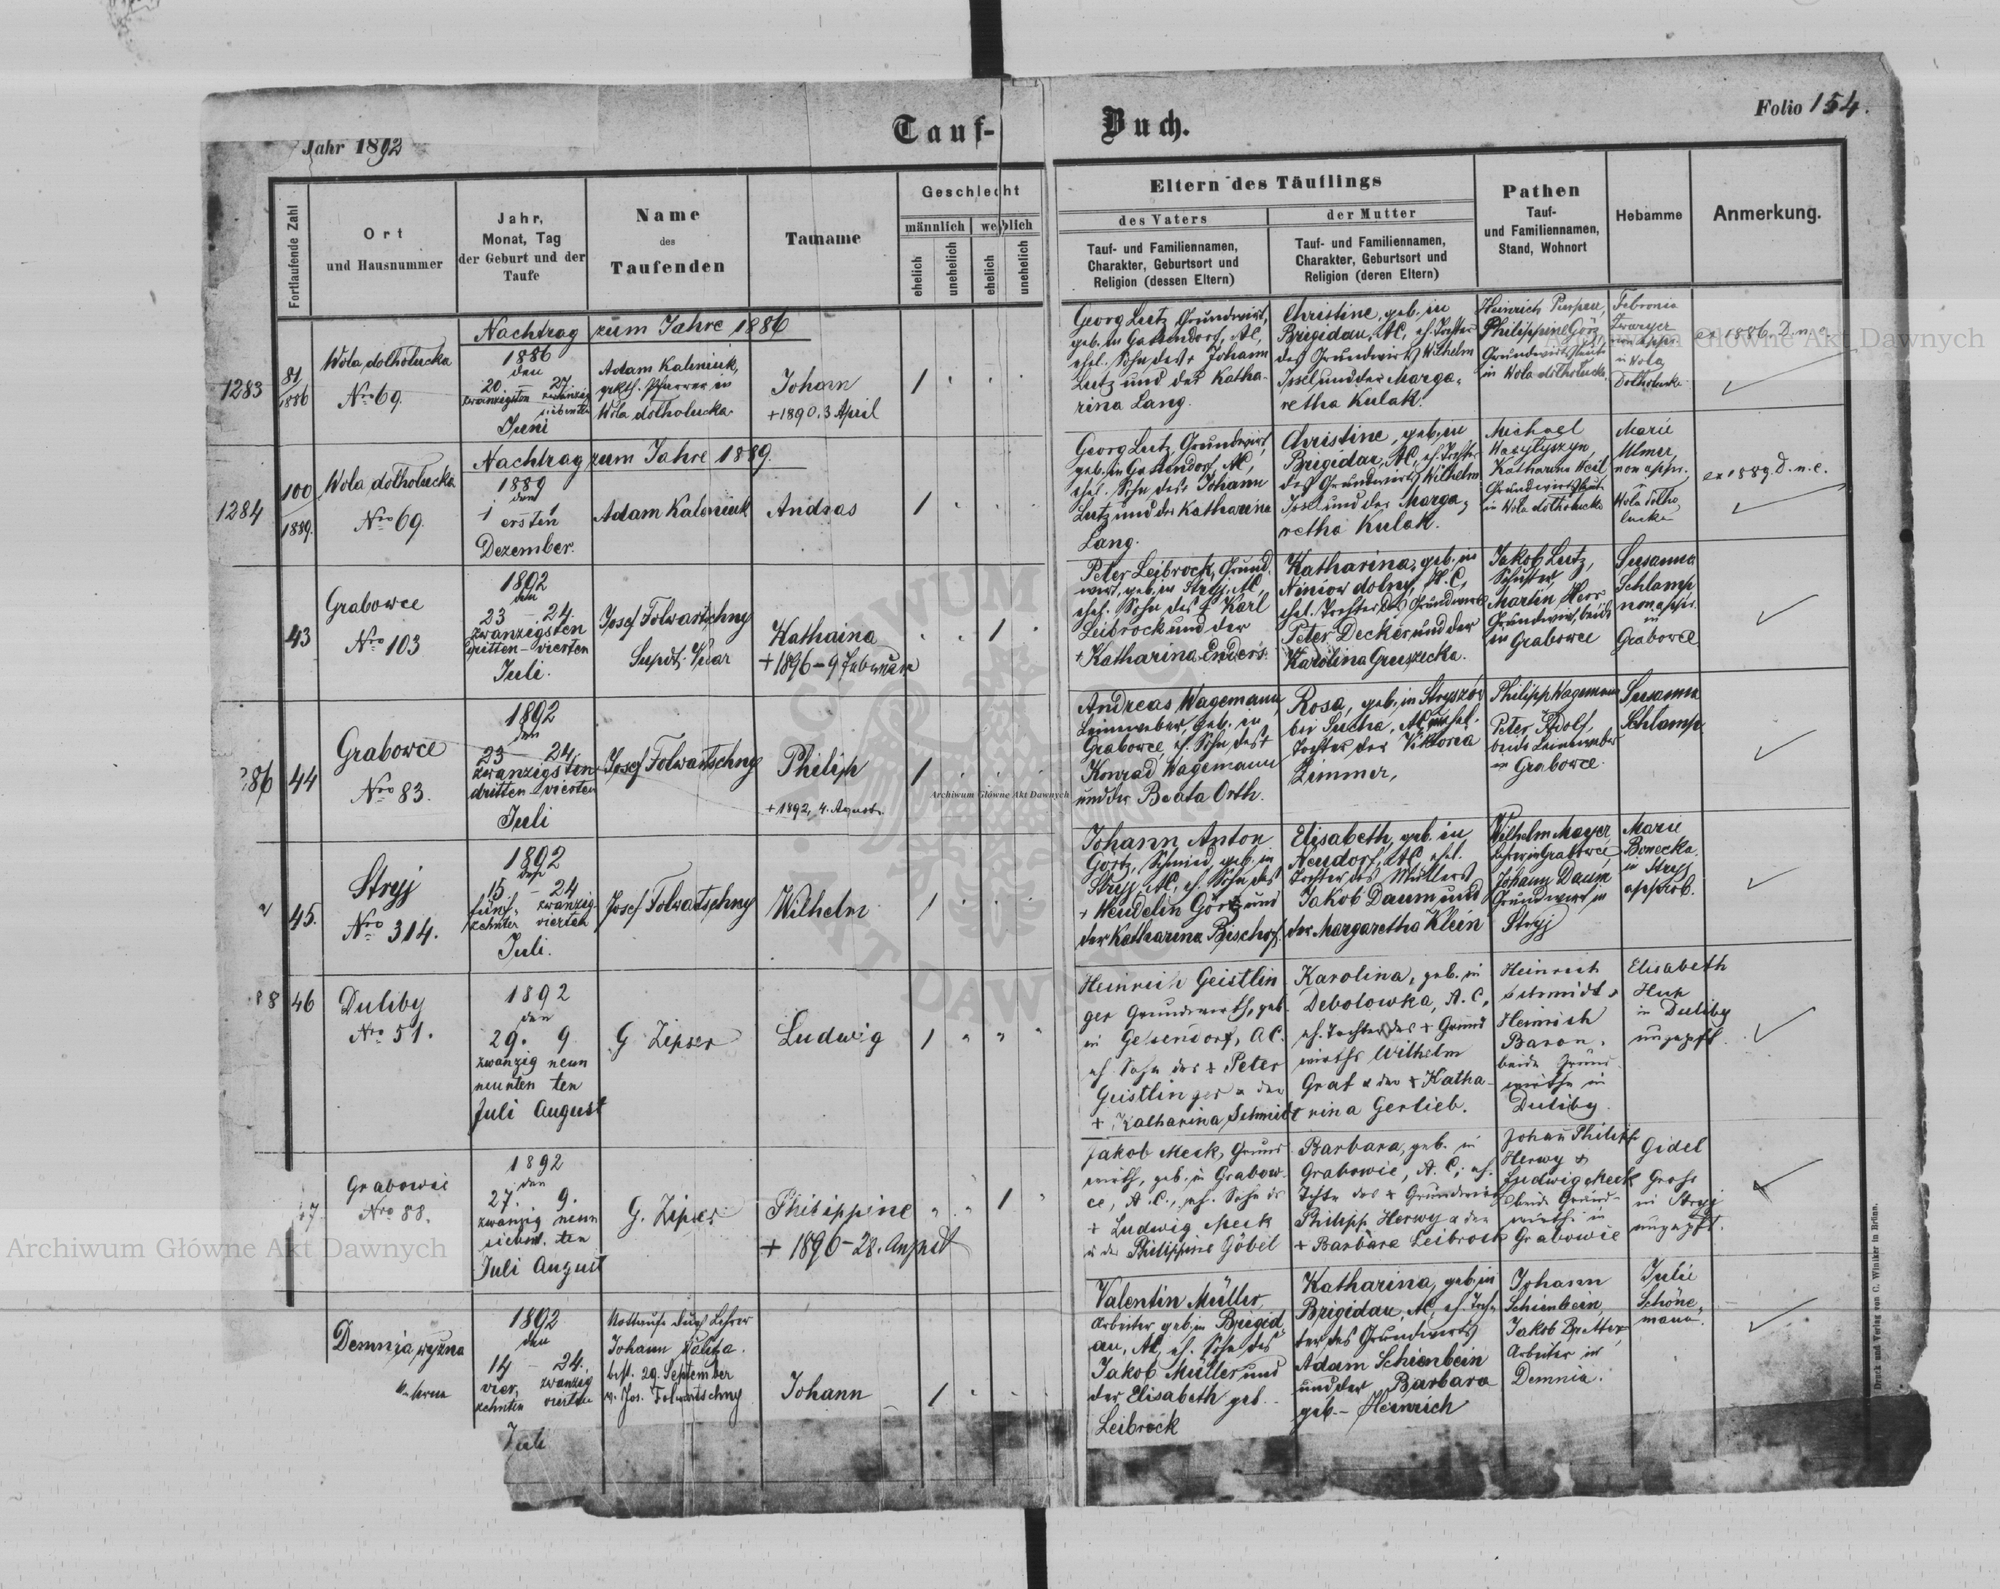 Jahr 1892
Tauf-
Buch.
Folio 154.
Fortlaufende Zahl
Ort
und Hausnummer
Jahr,
Monat, Tag
der Geburt und der
Taufe
Name
des
Taufenden
Taufname
Geschlecht
männlich
weiblich
ehelich
unehelich
ehelich
unehelich
Eltern des Täuflings
des Vaters
Tauf- und Familiennamen,
Charakter, Geburtsort und
Religion (dessen Eltern)
der Mutter
Tauf- und Familiennamen,
Charakter, Geburtsort und
Religion (deren Eltern)
Pathen
Tauf-
und Familiennamen,
Stand, Wohnort
Hebamme
Anmerkung.
Nachtrag zum Jahre 1886
1283
81
1886
Wola dolholucka
Nro 69
1886
den
20. 27.
zwanzigsten
Juni
Adam Kaleniuk,
Wola dolholucka
Johann
+ 1890. 3 April
1
Georg Lutz, Grundwirt,
geb. in Gassendorf, AC,
ehel. Sohn des + Johann
Lutz und der Katha-
rina Lang.
Christine, geb. in
Brigidau, AC, eh. Tochter
des Grundwirts Wilhelm
Issel und der Marga-
retha Kulak.
Philippine Görz,
Grundwirtsleute
in Wola dolholucka
Febronia
in Wola
Dolholucka
ex 1886. D. n. e.
Nachtrag zum Jahre 1889
1284
100
1889.
Wola dolholucka
Nro 69.
1889
den
1 1
ersten
Dezember.
Adam Kaleniuk
Andras
1
Georg Lutz, Grundwirt,
geb. in Gassendorf, AC,
ehel. Sohn des + Johann
Lutz und der Katharina
Lang.
Christine, geb. in
Brigidau, AC, eh. Tochter
des Grundwirts Wilhelm
Issel und der Marga-
retha Kulak.
Michael
Wasylyszyn,
Katharina Weil
Grundwirtsleute
in Wola dolholucka
Marie
Ulmer,
non appr.
Wola dolho
lucka
ex 1889. D. n. e.
43
Grabowce
Nro 103
1892
den
23 - 24.
zwanzigsten
dritten - vierten
Juli.
Josef Folwartschny
Supdt. Vikar
Kathaina
+ 1896 - 9 Februar
1
Peter Leibrock, Grund-
wirt, geb. in Stryj, AC,
ehel. Sohn des + Karl
Leibrock und der
+ Katharina Enders.
Katharina, geb. in
Niniow dolny, H. C,
ehel. Tochter des Grundwirts
Peter Decker, und der
Karolina Gruszecka.
Jakob Lutz,
Schuster
Martin Herr
Grundwirt, beide
in Grabowce
Susanna
Schlamp
non appr.
in
Grabowce
286
44
Grabowce
Nro 83.
1892
den
23 - 24.
zwanzigsten
dritten - vierten
Juli
Josef Folwartschny
Philipp
+ 1892, 4. August.
1
Andreas Wagemann,
Leinweber, geb. in
Grabowce, eh. Sohn des +
Konrad Wagemann
und der Beata Orth.
Rosa, geb. in Stryszów
bei Sucha, AC, unehel.
Tochter der Viktoria
Zimmer,
Philipp Wagemann
Peter Adolf,
beide Leinweber
in Grabowce.
Susanna
Schlamp
45.
Stryj
Nro 314.
1892
den
15 - 24
fünf- zwanzig
zehnter vierten
Juli.
Josef Folwartschny
Wilhelm
1
Johann Anton
Görtz, Schmied, geb. in
Stryj, AC, eh. Sohn des
+ Wendelin Görtz und
der Katharina Bischof.
Elisabeth, geb. in
Neudorf, AC, ehel.
Tochter des Müllers
Jakob Daum und
der Margaretha Klein
Wilhelm Mayer
Lehrer in Grabowce,
Johann Daum
Grundwirt in
Stryj
Marie
Bonecka
in Stryj
approb.
88
46
Duliby
Nro 51.
1892
den
29. 9
zwanzig neun
neunten ten
Juli August
G. Zipser
Ludwig
1
Heinrich Geistlin
ger Grundwirth, geb.
in Gelsendorf, A.C.
eh. Sohn des + Peter
Geistlinger u der
+ Katharina Schmidt
Karolina, geb. in
Debolowka, A. C,
eh. Tochter des + Grund
wirths Wilhelm
Graf u der + Katha-
rina Gerlieb.
Heinrich
Schmidt u
Heinrich
Baron,
beide Grund
wirthe in
Duliby.
Elisabeth
Hup
in Duliby
ungeprft.
47
Grabowie
Nro 88.
1892
den
27. 9.
zwanzig neun
sieben ten
Juli August
G. Zipser
Philippine
+ 1896 - 28. August
1
Jakob Meck, Grund
wirth, geb. in Grabow-
ce, A. C., eh. Sohn des
+ Ludwig Meck
u der Philippine Göbel
Barbara, geb. in
Grabowie, A. C, eh.
Tchtr des + Grundwirths
Philipp Herwy u der
+ Barbara Leibrock
Johann Philipp
Herwy u
Ludwig Meck
beide Grund-
wirthe in
Grabowie
Gidel
Grohs
in Stryj
ungeprft.
Demnia wyżna
1892
den
14 - 24.
vier- zwanzig
zehnten vierten
Juli
Nothtaufe durch Lehrer
Johann
best. 29. September
v. Jos. Folwartschny
Johann
1
Valentin Müller,
Arbeiter geb. in Brigid-
au, AC, eh. Sohn des
Jakob Müller und
der Elisabeth geb.
Leibrock
Katharina, geb. in
Brigidau, AC, eh. Toch-
ter des Grundwirts
Adam Schienbein
und der Barbara
geb. - Heinrich
Johann
Schienbein,
Jakob Bretter
Arbeiter in
Demnia.
Julie
Schöne-
mann.
Druck und Verlag von C. Winiker in Brünn.
Archiwum Główne Akt Dawnych
Archiwum Główne Akt Dawnych
Archiwum Główne Akt Dawnych
ARCHIWUM
AKT DAWNYCH